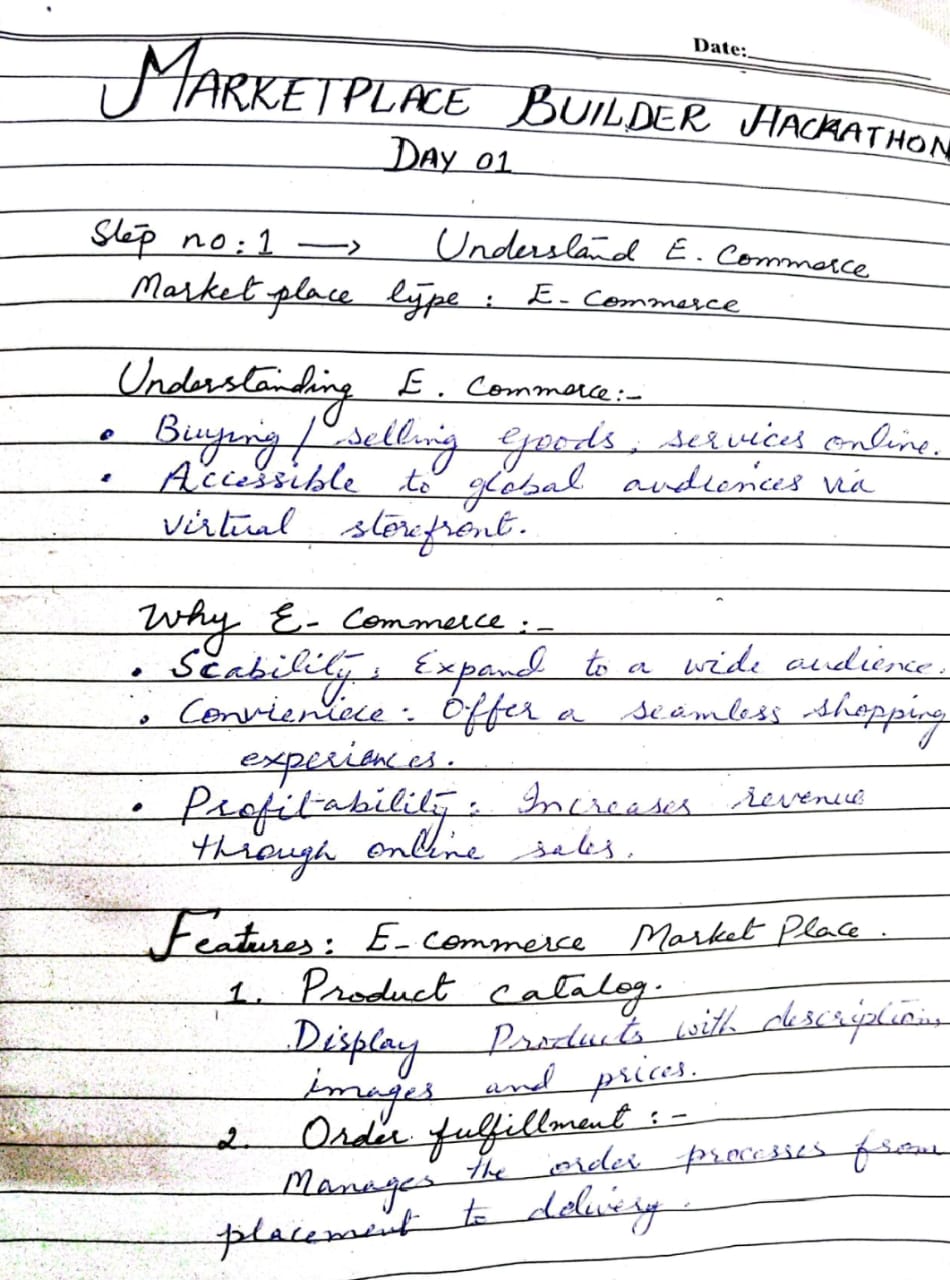 Date:
MARKETPLACE BUILDER HACKATHON
DAY 01
Step no:1 → Understand E. Commerce
Market place type : E-Commerce
Understanding E. Commerce:-
• Buying / selling goods, services online.
• Accessible to global audiences via
virtual storefront.
Why E-Commerce:-
• Scability: Expand to a wide audience.
• Convieniece: Offer a seamless shopping
experiences.
• Profitability: Increases revenue
through online sales.
Features: E-commerce Market Place.
1. Product catalog.
Display Products with descriptions
images and prices.
2. Order fulfillment :-
Manages the order processes from
placement to delivery.